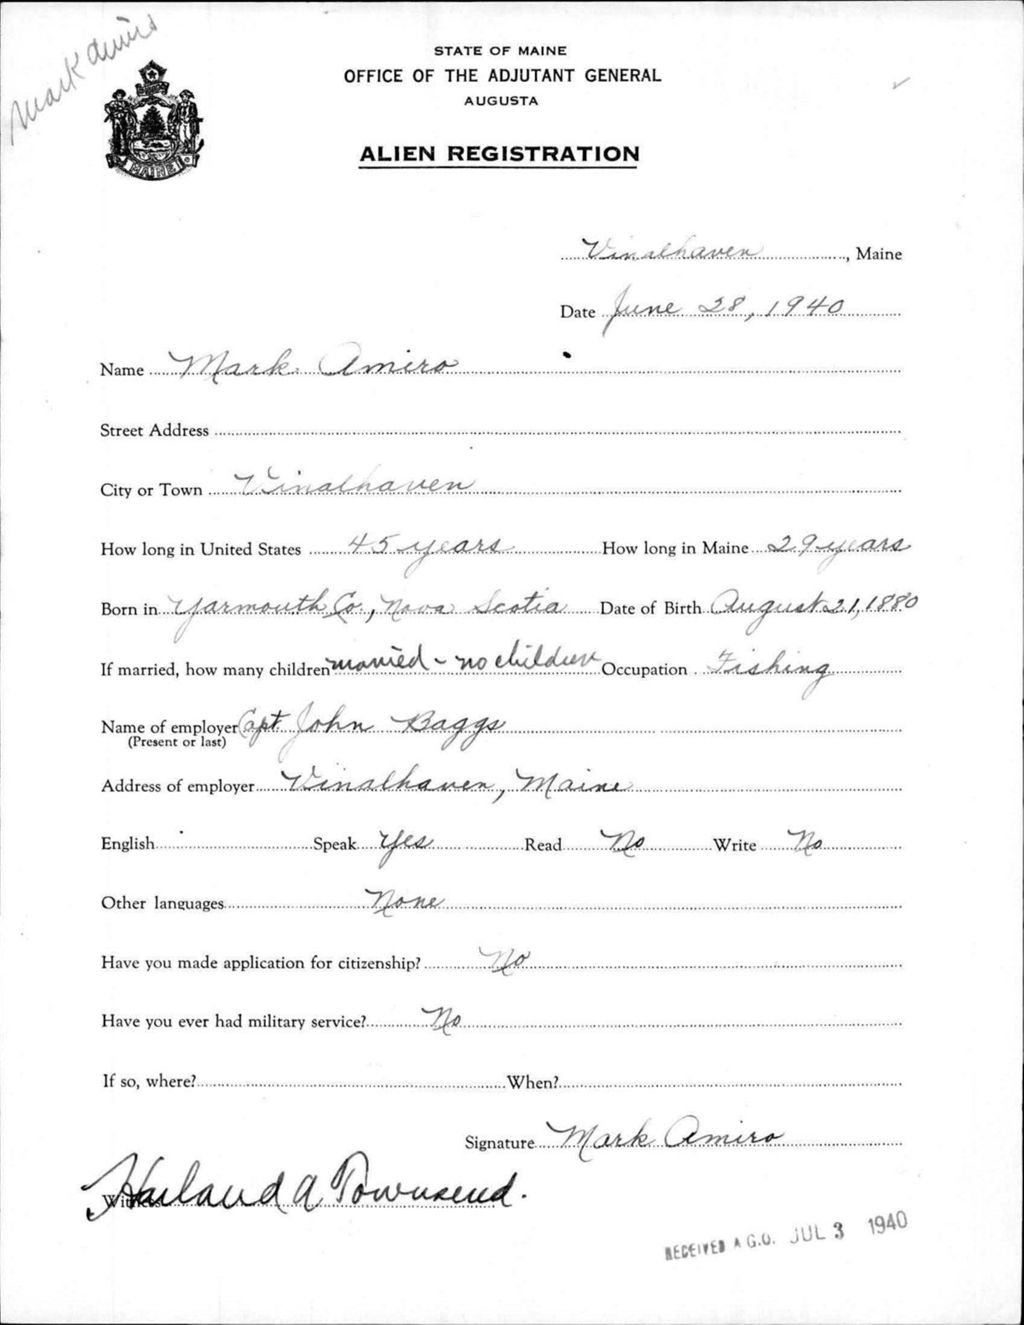 Mark Amiro
STATE OF MAINE
OFFICE OF THE ADJUTANT GENERAL
AUGUSTA
ALIEN REGISTRATION
MAINE
Vinalhaven, Maine
Date June 28, 1940
Name Mark Amiro
Street Address
City or Town Vinalhaven
How long in United States 45 years How long in Maine 29 years
Born in Yarmouth Co., Nova Scotia Date of Birth August 21, 1880
If married, how many children married - no children Occupation Fishing
Name of employer Capt. John Baggs
(Present or last)
Address of employer Vinalhaven, Maine
English Speak Yes Read No Write No
Other languages None
Have you made application for citizenship? No
Have you ever had military service? No
If so, where? When?
Signature Mark Amiro
Witness Harland A Townsend.
RECEIVED A.G.O. JUL 3 1940